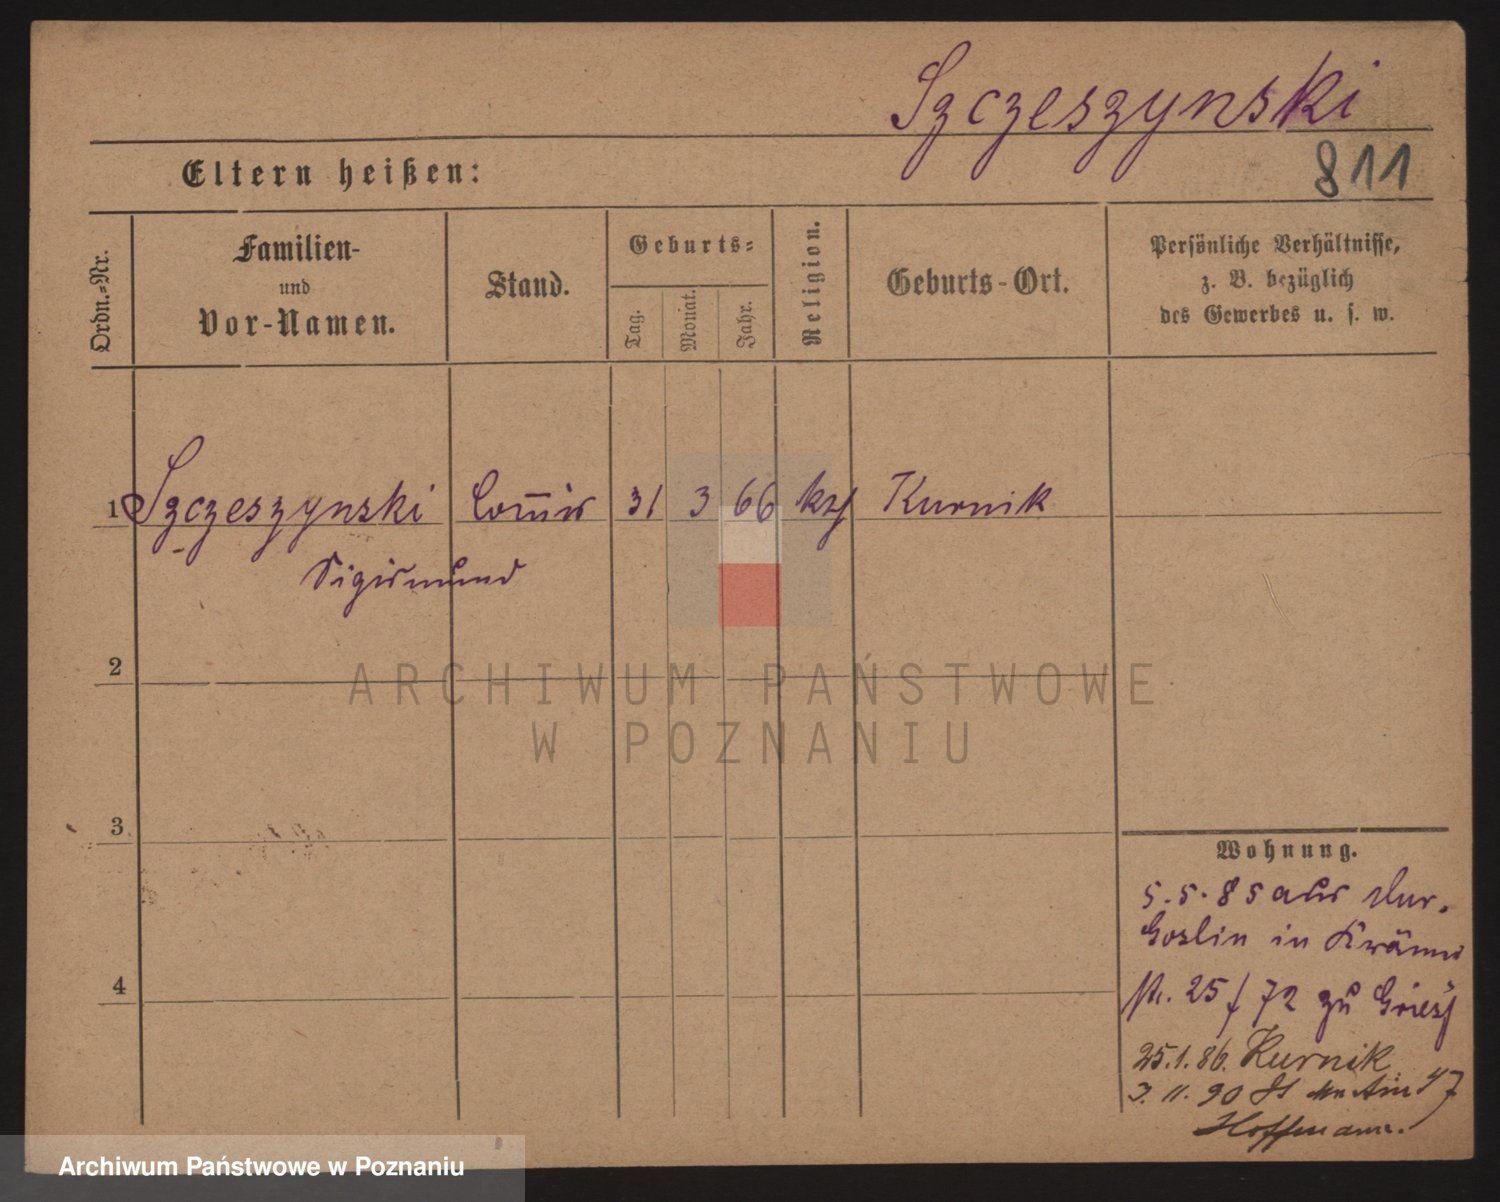 Szczeszynski
811
Eltern heißen:
Ordn.=Nr.
Familien-
und
Vor-Namen.
Stand.
Geburts=
Tag.
Monat.
Jahr.
Religion.
Geburts-Ort.
Persönliche Verhältnisse,
z. B. bezüglich
des Gewerbes u. s. w.
1 Szczeszynski Com̅is 31 3 66 kth Kurnik
Sigismund
2
ARCHIWUM PAŃSTWOWE
W POZNANIU
3
4
Wohnung.
5.5.85 aus Mur.
Goslin in Krämer
str. 25/72 zu
25.1.86. Kurnik
3.11.90 St Martin 47
Hoffmann.
Archiwum Państwowe w Poznaniu